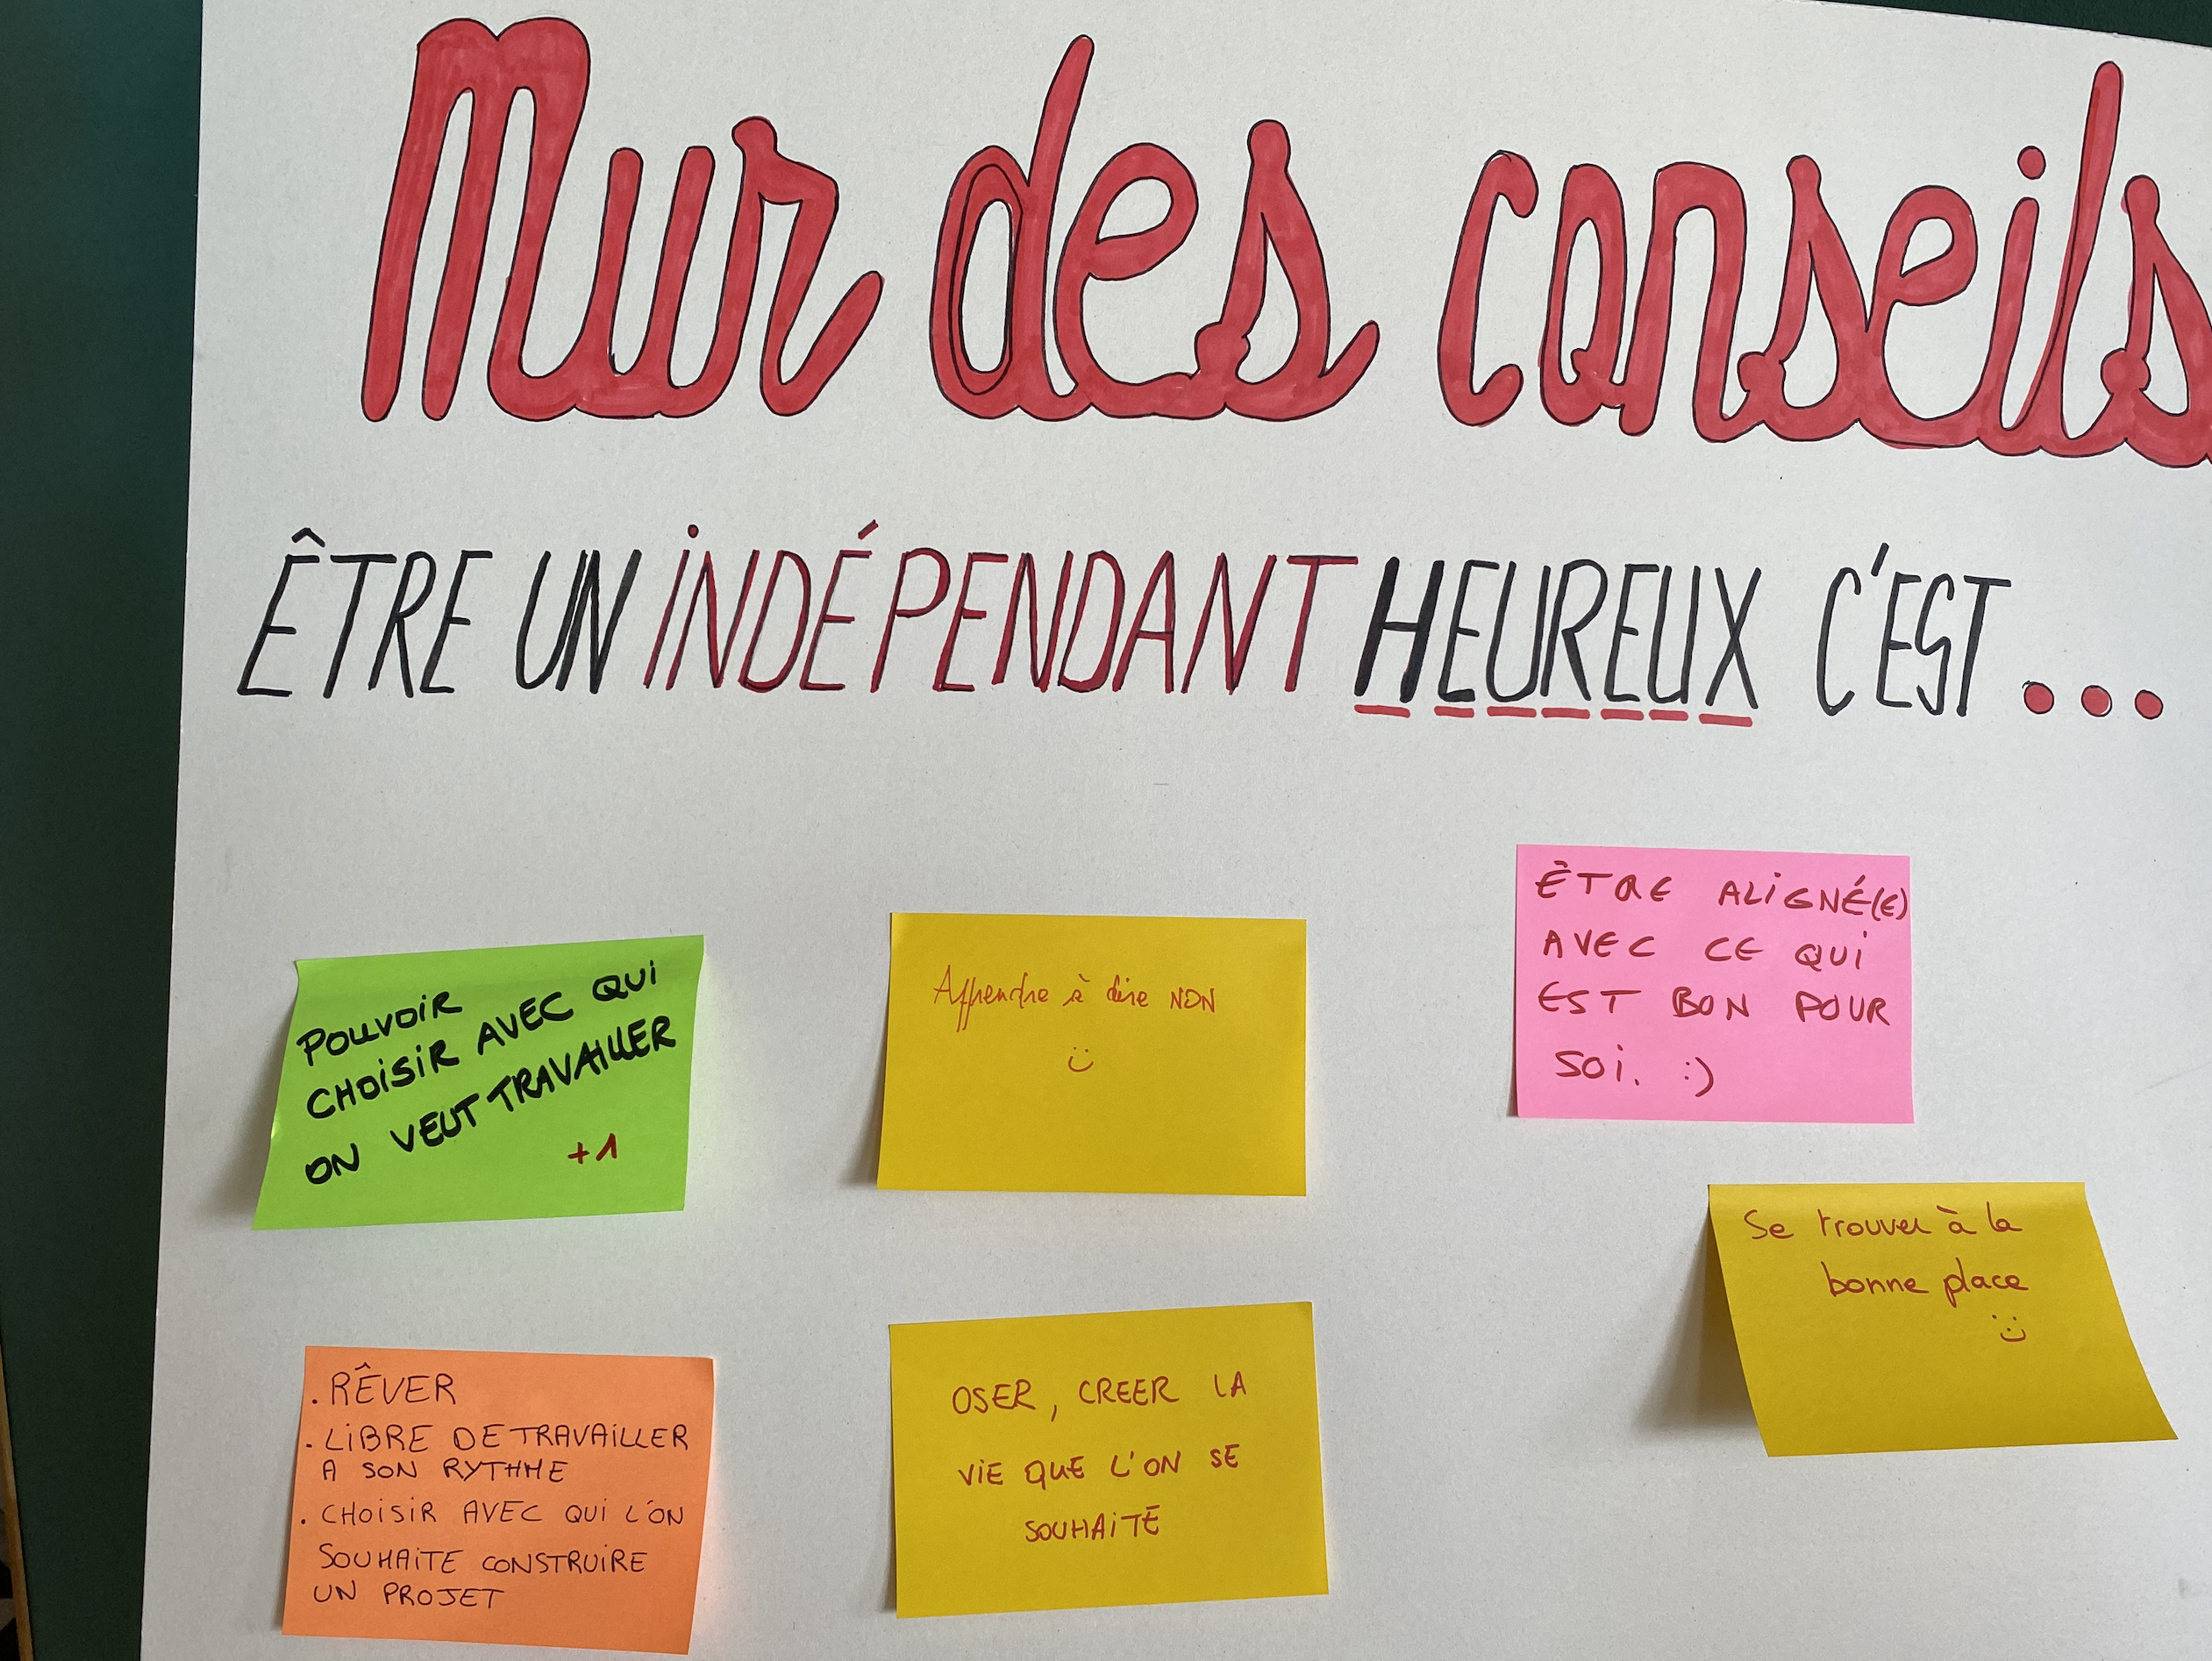 Mur des conseils
ÊTRE UN iNDÉPENDANT HEUREUX C'EST...
POUVOiR
CHOiSiR AVEC QUi
ON VEUT TRAVAiLLER
+1
Apprendre à dire NON
ÊTRE ALiGNÉ(E)
AVEC CE QUi
EST BON POUR
SOi. :)
Se trouver à la
bonne place
. RÊVER
. LiBRE DE TRAVAiLLER
A SON RYTHME
. CHOiSiR AVEC QUi L'ON
SOUHAiTE CONSTRUiRE
UN PROJET
OSER, CREER LA
ViE QUE L'ON SE
SOUHAiTE